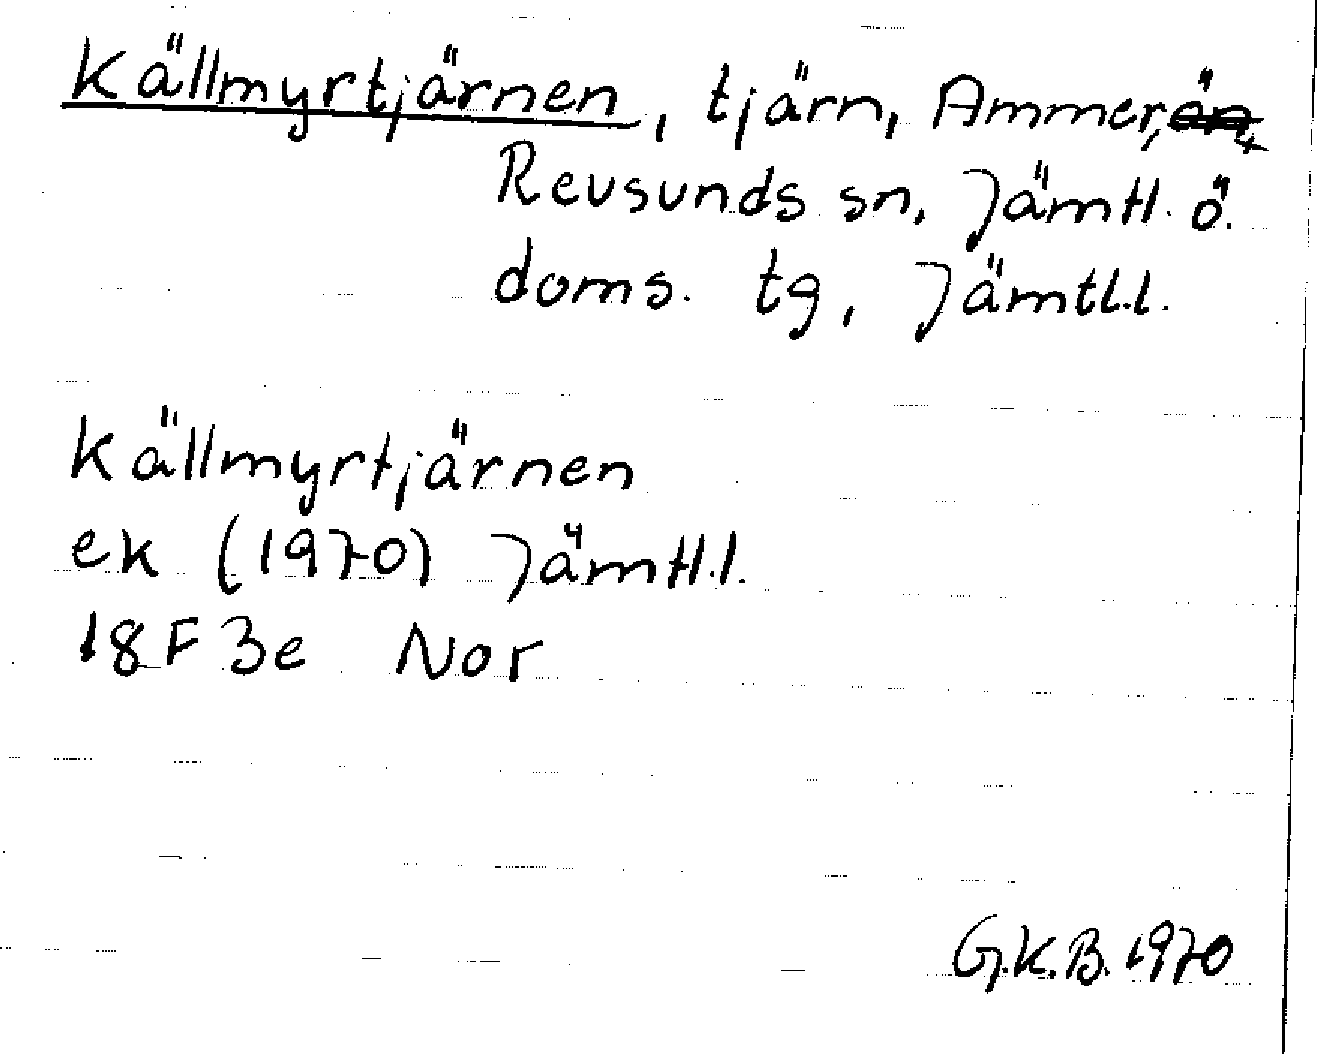 Källmyrtjärnen, tjärn, Ammer,
Revsunds sn, Jämtl. ö.
doms. tg, Jämtl.l.
Källmyrtjärnen
ek (1970) Jämtl.l.
18F 3e Nor
G.K.B. 1970